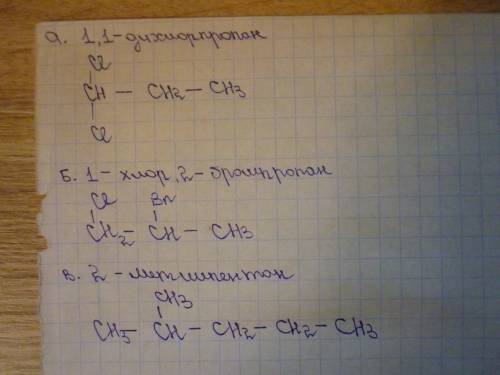 а. 1,1-дихлорпропан
Cl
CH — CH2 — CH3
Cl
Б. 1-хлор, 2-бромпропан
Cl Br
CH2 — CH — CH3
в. 2-метилпентан
CH3
CH3 — CH — CH2 — CH2 — CH3